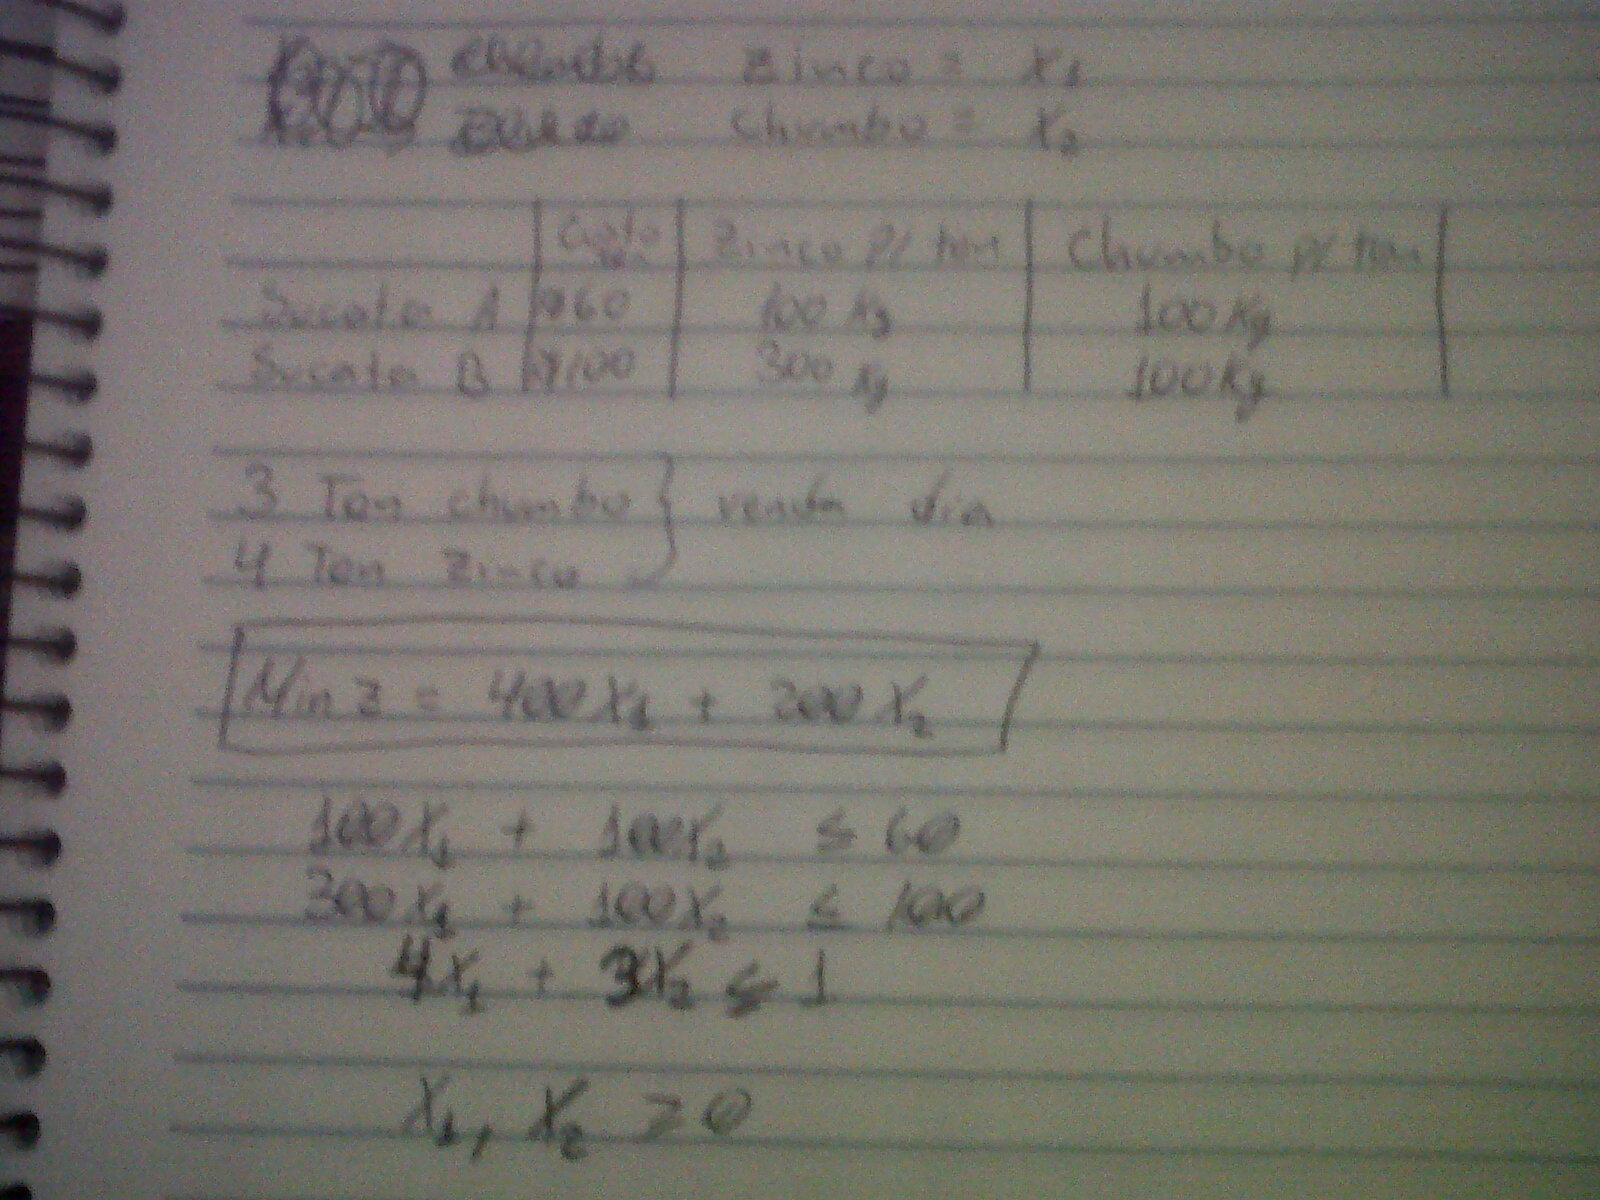 Zinco = X1
Chumbo = X2
Custo Ton Zinco p/ ton Chumbo p/ ton
Sucata A 60 100 Kg 100 Kg
Sucata B 100 300 Kg 100 Kg
3 Ton chumbo } venda dia
4 Ton Zinco
Min z = 400X1 + 200X2
100X1 + 100X2 ≤ 60
300X1 + 100X2 ≤ 100
4X1 + 3X2 ≤ 1
X1, X2 ≥ 0